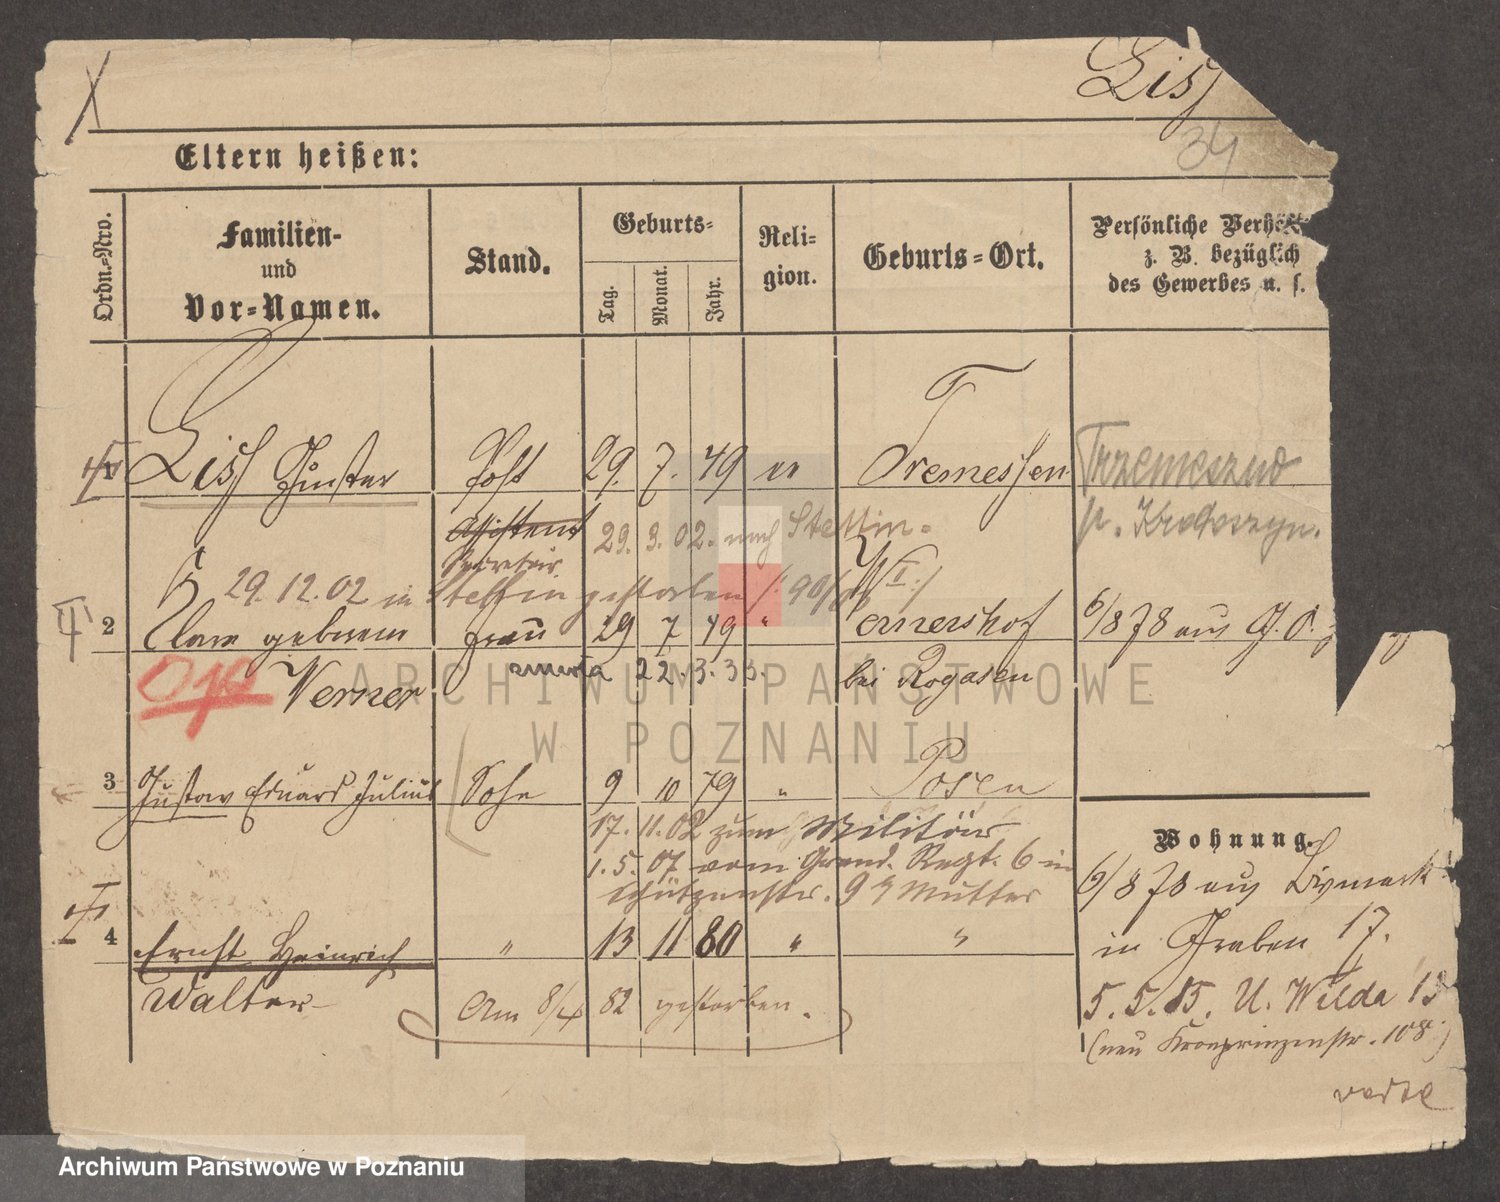 Liss
34
Eltern heißen:
Ordn.-Nro.
Familien-
und
Vor-Namen.
Stand.
Geburts-
Tag.
Monat.
Jahr.
Reli-
gion.
Geburts-Ort.
Persönliche Verhält
z. B. bezüglich
des Gewerbes u. s.
Liss Gustav Post 29. 7. 49 ev Tremessen Trzemeszno
p. Krotoszyn.
Assistent 29. 3. 02. nach Stettin
Secretair
29.12.02 in Stettin gestorben
2 Clara geborene Frau 29 7 49 " Wernershof 6/8 78 aus G. O.
Werner zmarła 22.3.33. bei Rogasen
3 Gustav Eduard Julius Sohn 9 10 79 " Posen
17. 11. 02 zum Militär
1. 5. 07 vom Grend. Regt. 6 in
Schützenstr. 9 Mutter
Wohnung.
6/8 78 aus Bismark
in Graben 17.
4 Ernst Heinrich " 13 11 80 " "
Walter Am 8/4 82 gestorben.
5. 5. 85. U. Wilda 13
(neu Kronprinzenstr. 108)
verte
ARCHIWUM PAŃSTWOWE
W POZNANIU
Archiwum Państwowe w Poznaniu